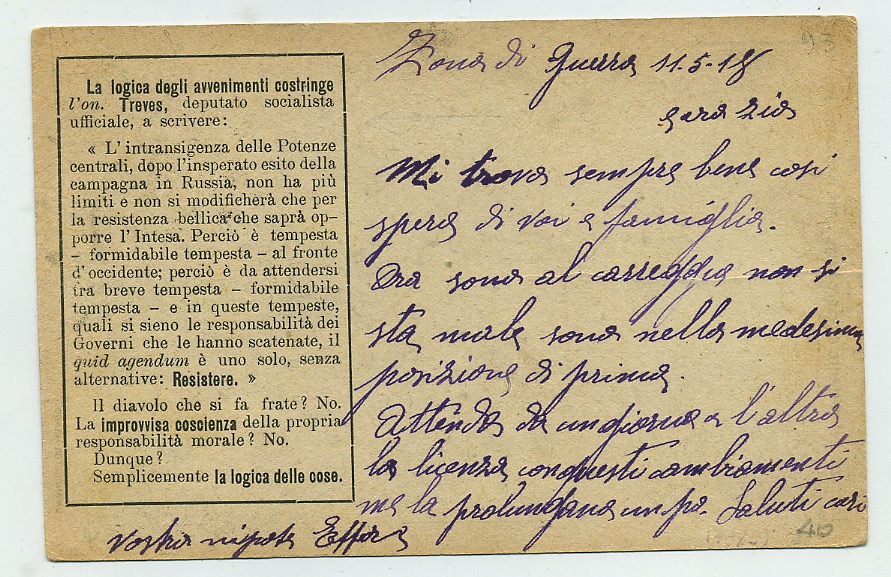 La logica degli avvenimenti costringe
l'on. Treves, deputato socialista
ufficiale, a scrivere:
« L'intransigenza delle Potenze
centrali, dopo l'insperato esito della
campagna in Russia, non ha più
limiti e non si modificherà che per
la resistenza bellica che saprà op-
porre l'Intesa. Perciò è tempesta
– formidabile tempesta – al fronte
d'occidente; perciò è da attendersi
tra breve tempesta – formidabile
tempesta – e in queste tempeste,
quali si sieno le responsabilità dei
Governi che le hanno scatenate, il
quid agendum è uno solo, senza
alternative: Resistere. »
Il diavolo che si fa frate? No.
La improvvisa coscienza della propria
responsabilità morale? No.
Dunque?
Semplicemente la logica delle cose.
93
Zona di Guerra 11-5-18
Cara zia
Mi trovo sempre bene così
spero di voi e famiglia.
Ora sono al carreggio non si
sta male sono nella medesima
posizione di prima.
Attendo da un giorno a l'altro
la licenza con questi cambiamenti
me la prolungano un po. Saluti cari
Vostro nipote
40